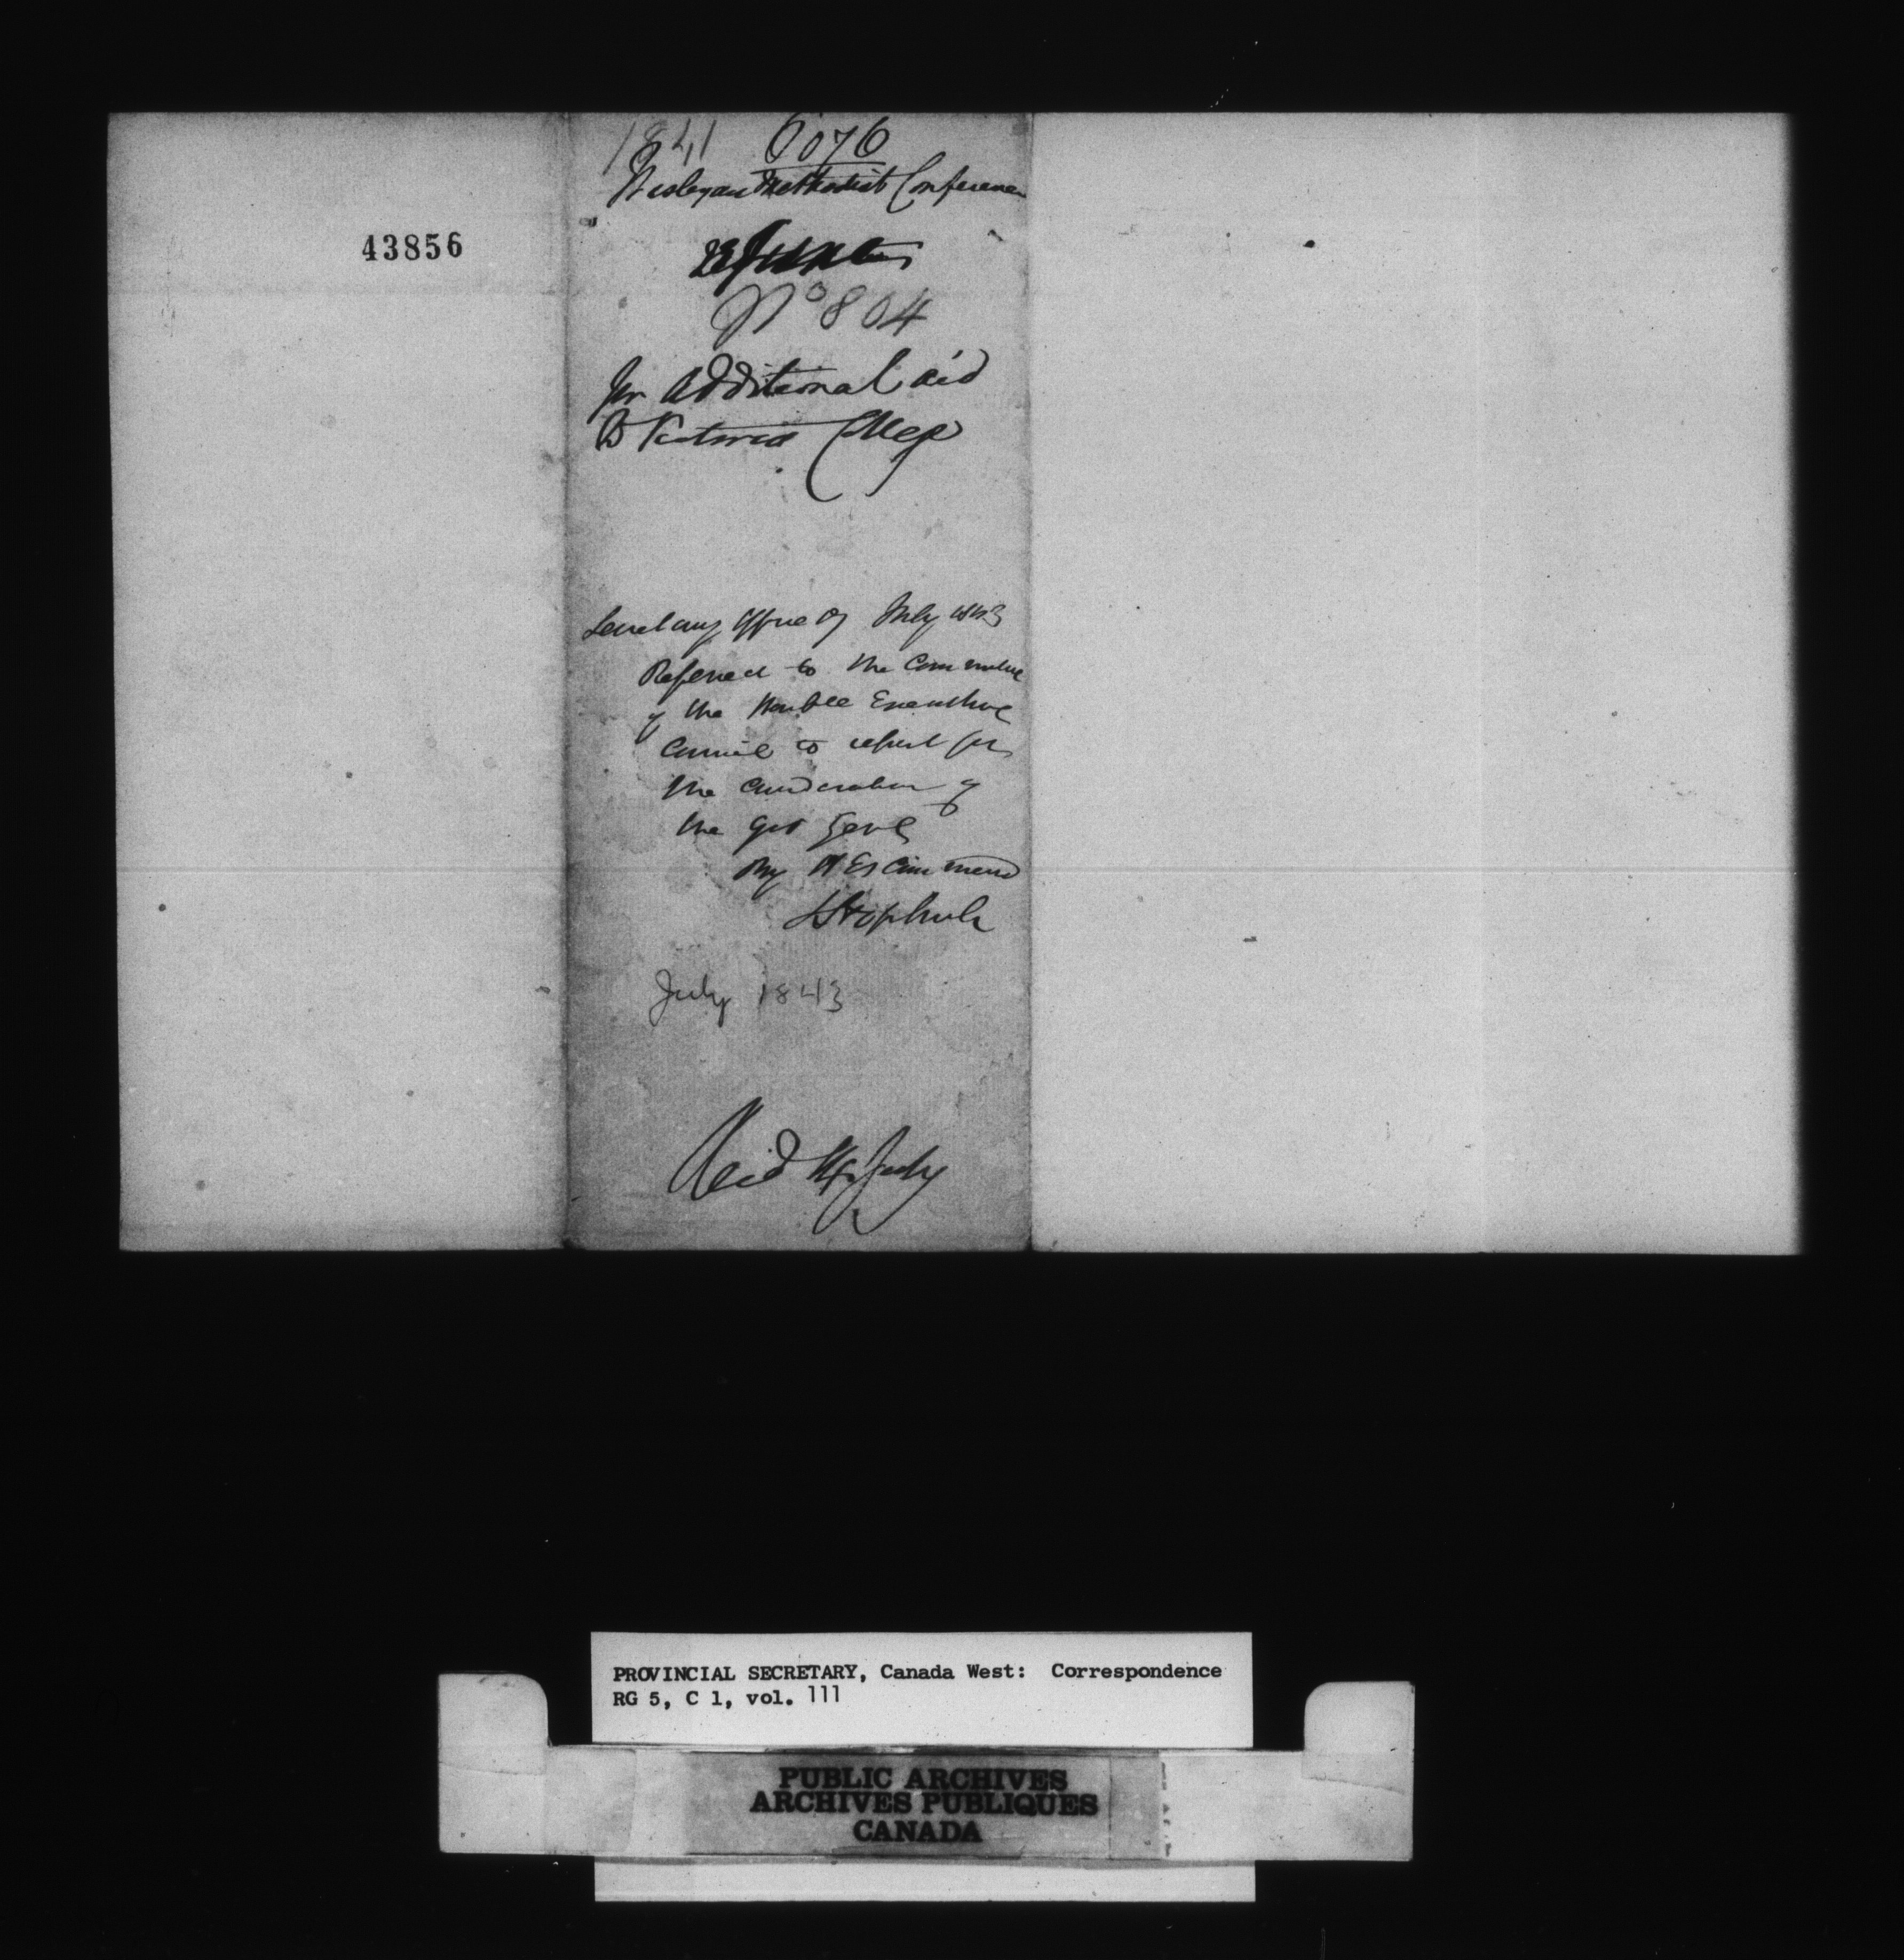 43856
1841 6076
Wesleyan Methodist Conference
No 804
for additional aid
to Victoria College
Secretary Office July 1843
Referred to the Committee
of the Honble Executive
Council to report for
the consideration of
the Gov Genl
By H Es Command
July 1843
Recd 14 July
PROVINCIAL SECRETARY, Canada West: Correspondence
RG 5, C 1, vol. 111
PUBLIC ARCHIVES
ARCHIVES PUBLIQUES
CANADA